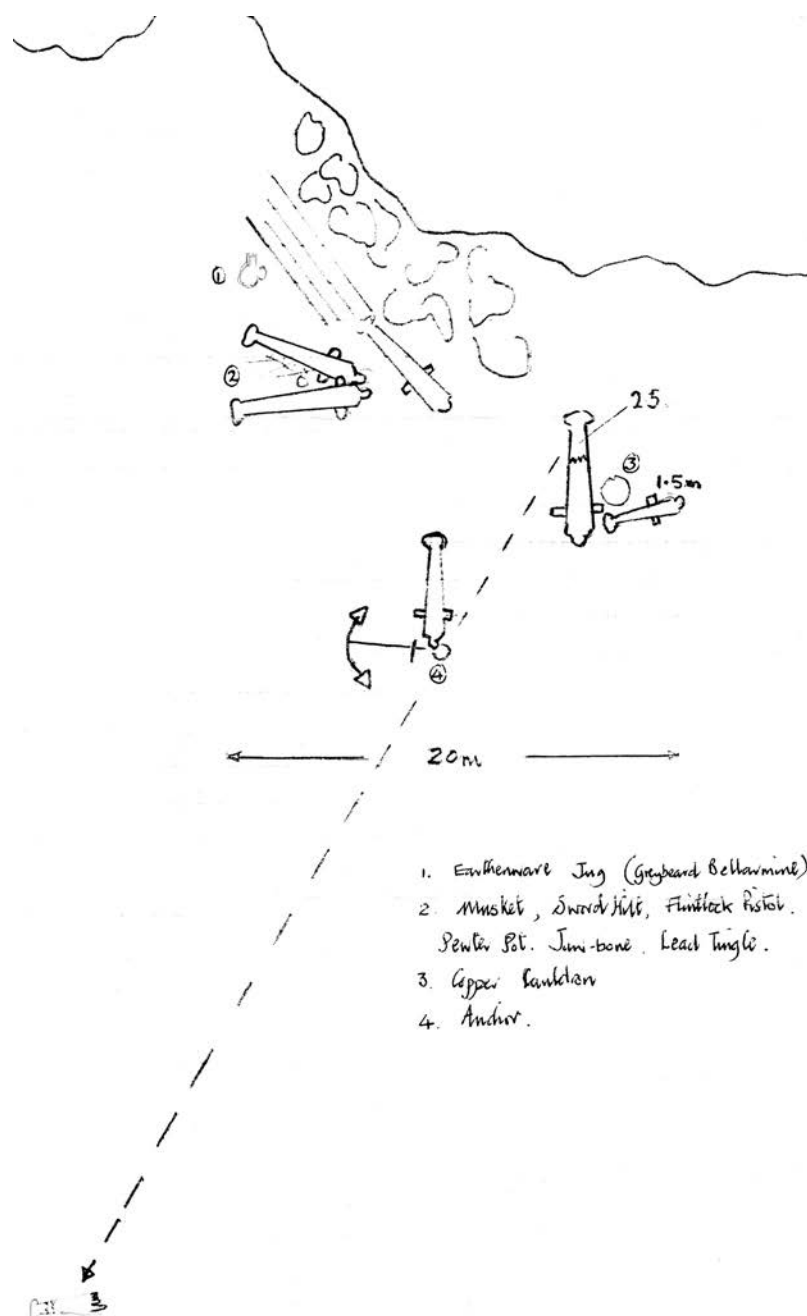 ①
②
25.
③
1.5m
④
20m
1. Earthenware Jug (Greybeard Bellarmine)
2. Musket, Sword Hilt, Flintlock Pistol.
Pewter Pot. Jaw-bone. Lead Tingle.
3. Copper Cauldron
4. Anchor.